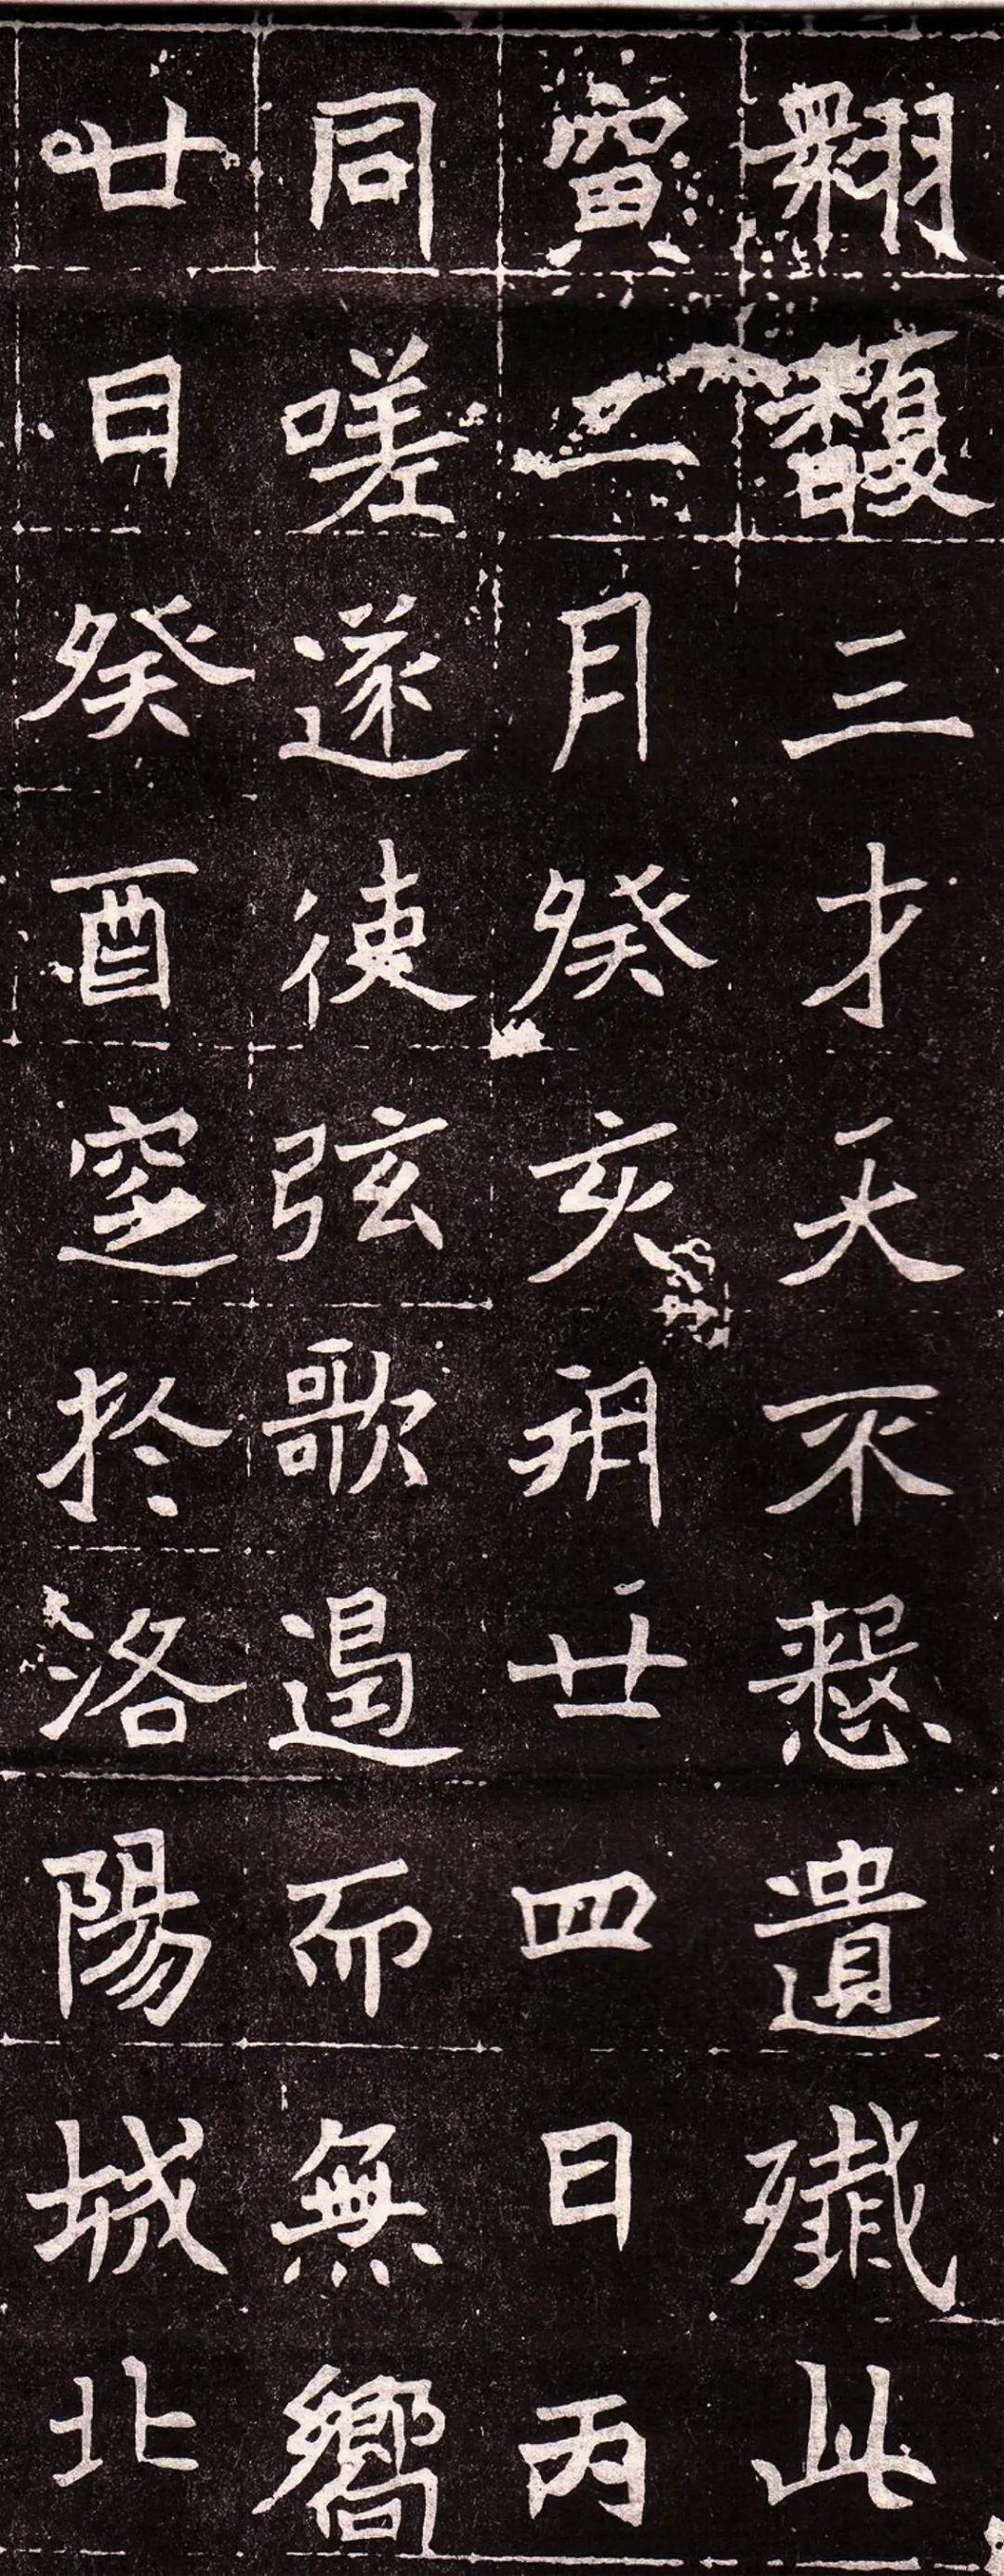 翱馥三才天不慭遺殲此
寅二月癸亥朔廿四日丙
同嗟遂使弦歌遏而無響
廿日癸酉窆於洛陽城北